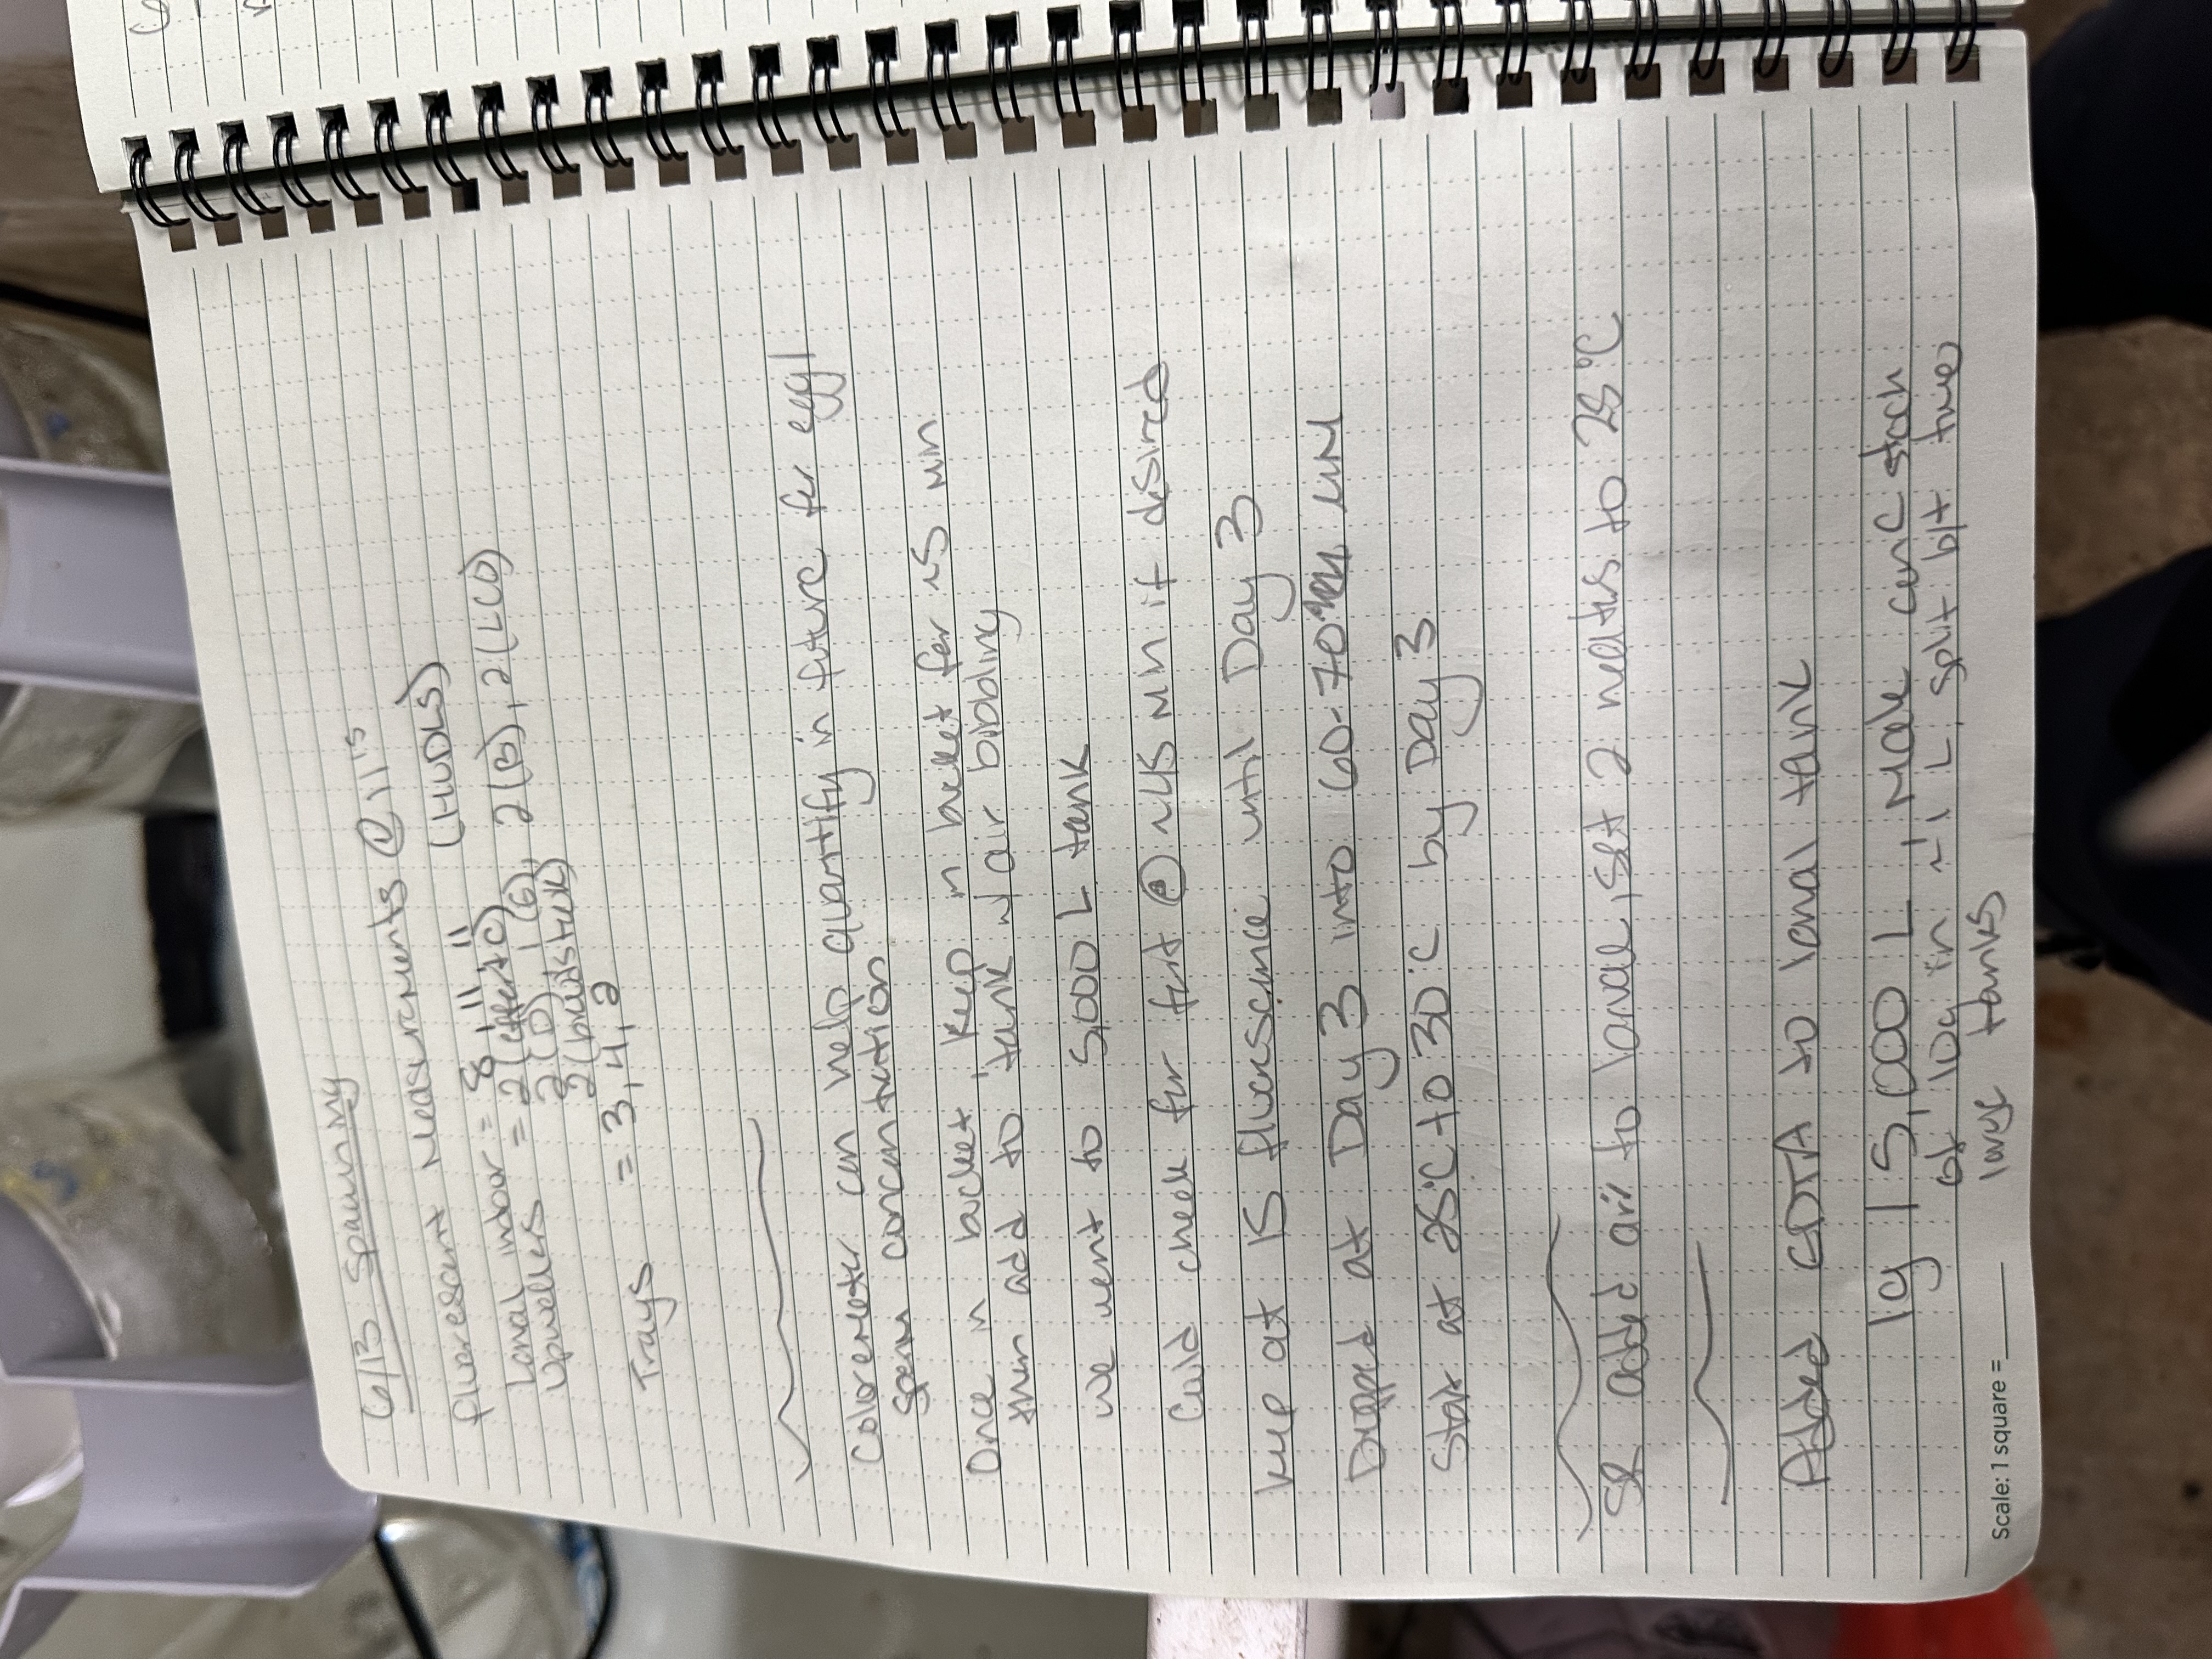 6/13 Spawning
fluorescent Measurements @ 11¹⁵
Larval indoor = 8, 11, 11 (HUDLS)
Upwellers = 2 (effort C)
2 (D), 1 (G), 2 (B), 2 (LCO)
2 (broodstock)
Trays = 3, 4, 2
Coloremeter can help quantify in future for egg/
sperm concentration
Once in bucket, keep in bucket for ~5 min
then add to tank w/ air bubbling
We went to 5,000 L tank
Could check for fert @ ~45 min if desired
keep at 15 fluorscence until Day 3
Dropped at Day 3 into 60-70 uM
Start at 25°C to 30°C by Day 3
SR added air to larvae, set 2 heaters to 25°C
Added EDTA to larval tank
1g / 5,000 L, Make conc stock
of 10g in ~1 L, split b/t two
large tanks
Scale: 1 square =